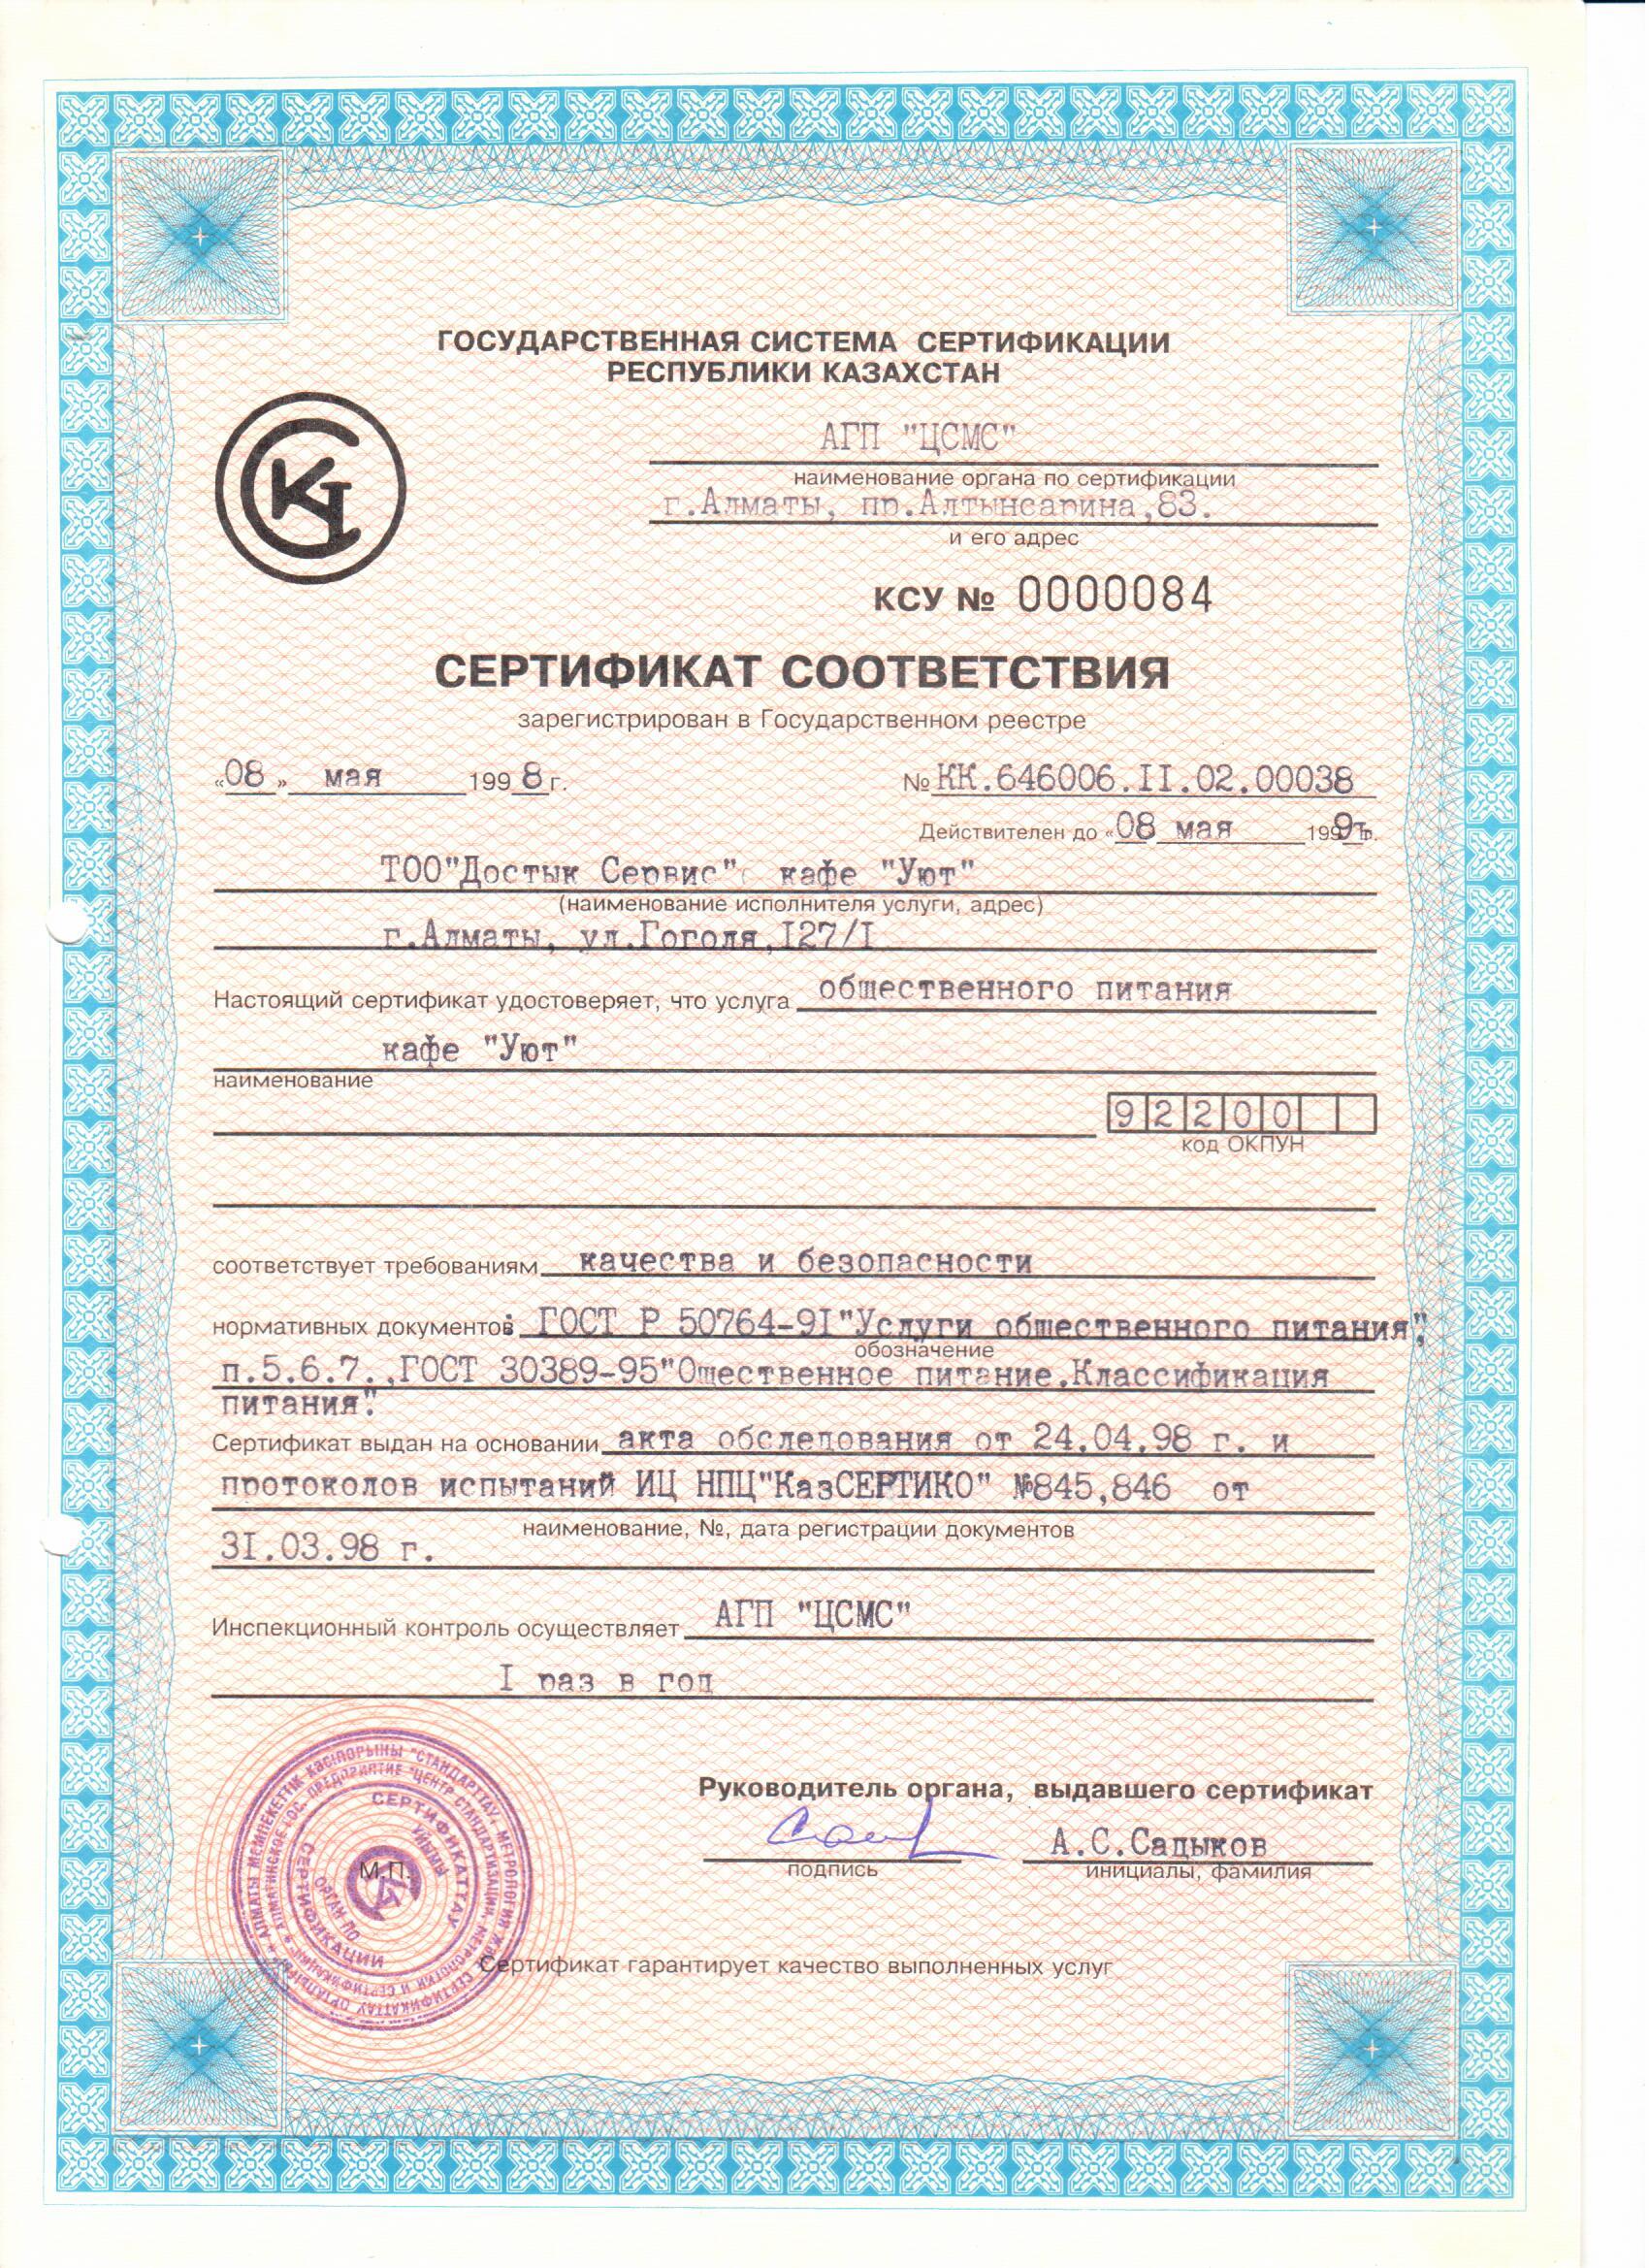 ГОСУДАРСТВЕННАЯ СИСТЕМА СЕРТИФИКАЦИИ
РЕСПУБЛИКИ КАЗАХСТАН
АГП "ЦСМС"
наименование органа по сертификации
г.Алматы, пр.Алтынсарина,83.
и его адрес
КСУ № 0000084
СЕРТИФИКАТ СООТВЕТСТВИЯ
зарегистрирован в Государственном реестре
«08» мая 1998 г.
№ КК.646006.II.02.00038
Действителен до «08 мая 1999г.
ТОО"Достык Сервис" кафе "Уют"
(наименование исполнителя услуги, адрес)
г.Алматы, ул.Гоголя,I27/I
Настоящий сертификат удостоверяет, что услуга общественного питания
кафе "Уют"
наименование
92200
код ОКПУН
соответствует требованиям качества и безопасности
нормативных документов: ГОСТ Р 50764-9I"Услуги общественного питания",
обозначение
п.5.6.7.,ГОСТ 30389-95"Ошественное питание.Классификация
питания".
Сертификат выдан на основании акта обследования от 24.04.98 г. и
протоколов испытаний ИЦ НПЦ"КазСЕРТИКО" №845,846 от
наименование, №, дата регистрации документов
3I.03.98 г.
Инспекционный контроль осуществляет АГП "ЦСМС"
I раз в год
Руководитель органа, выдавшего сертификат
А.С.Садыков
подпись
инициалы, фамилия
М.П.
АЛМАТЫ МЕМЛЕКЕТТІК КӘСІПОРЫНЫ "СТАНДАРТТАУ, МЕТРОЛОГИЯ ЖӘНЕ СЕРТИФИКАТТАУ ОРТАЛЫҒЫ"
АЛМАТИНСКОЕ ГОС. ПРЕДПРИЯТИЕ "ЦЕНТР СТАНДАРТИЗАЦИИ, МЕТРОЛОГИИ И СЕРТИФИКАЦИИ"
СЕРТИФИКАТТАУ
ҰЙЫМЫ
ОРГАН ПО
СЕРТИФИКАЦИИ
Сертификат гарантирует качество выполненных услуг